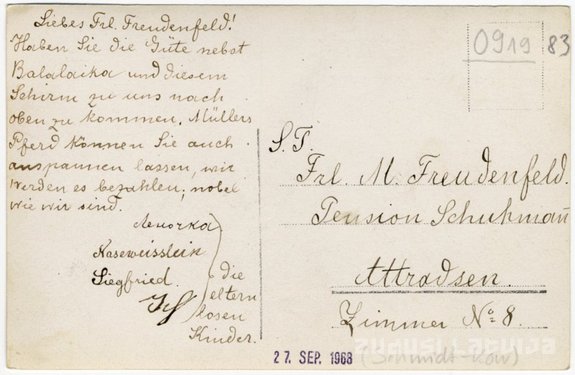 Liebes Frl. Freudenfeld!
Haben Sie die Güte nebst
Balalaika und diesem
Schirm zu uns nach
oben zu kommen. Müllers
Pferd können Sie auch
anspannen lassen, wir
werden es bezahlen, nobel
wie wir sind.
Lenorka
Naseweisslein
Siegfried.
die
eltern
losen
Kinder.
0919
83
S. T.
Frl. M. Freudenfeld.
Pension Schuhmañ
Attradsen.
Zimmer № 8.
(Schmidt-Kow)
27. SEP. 1968
zudusi latvija